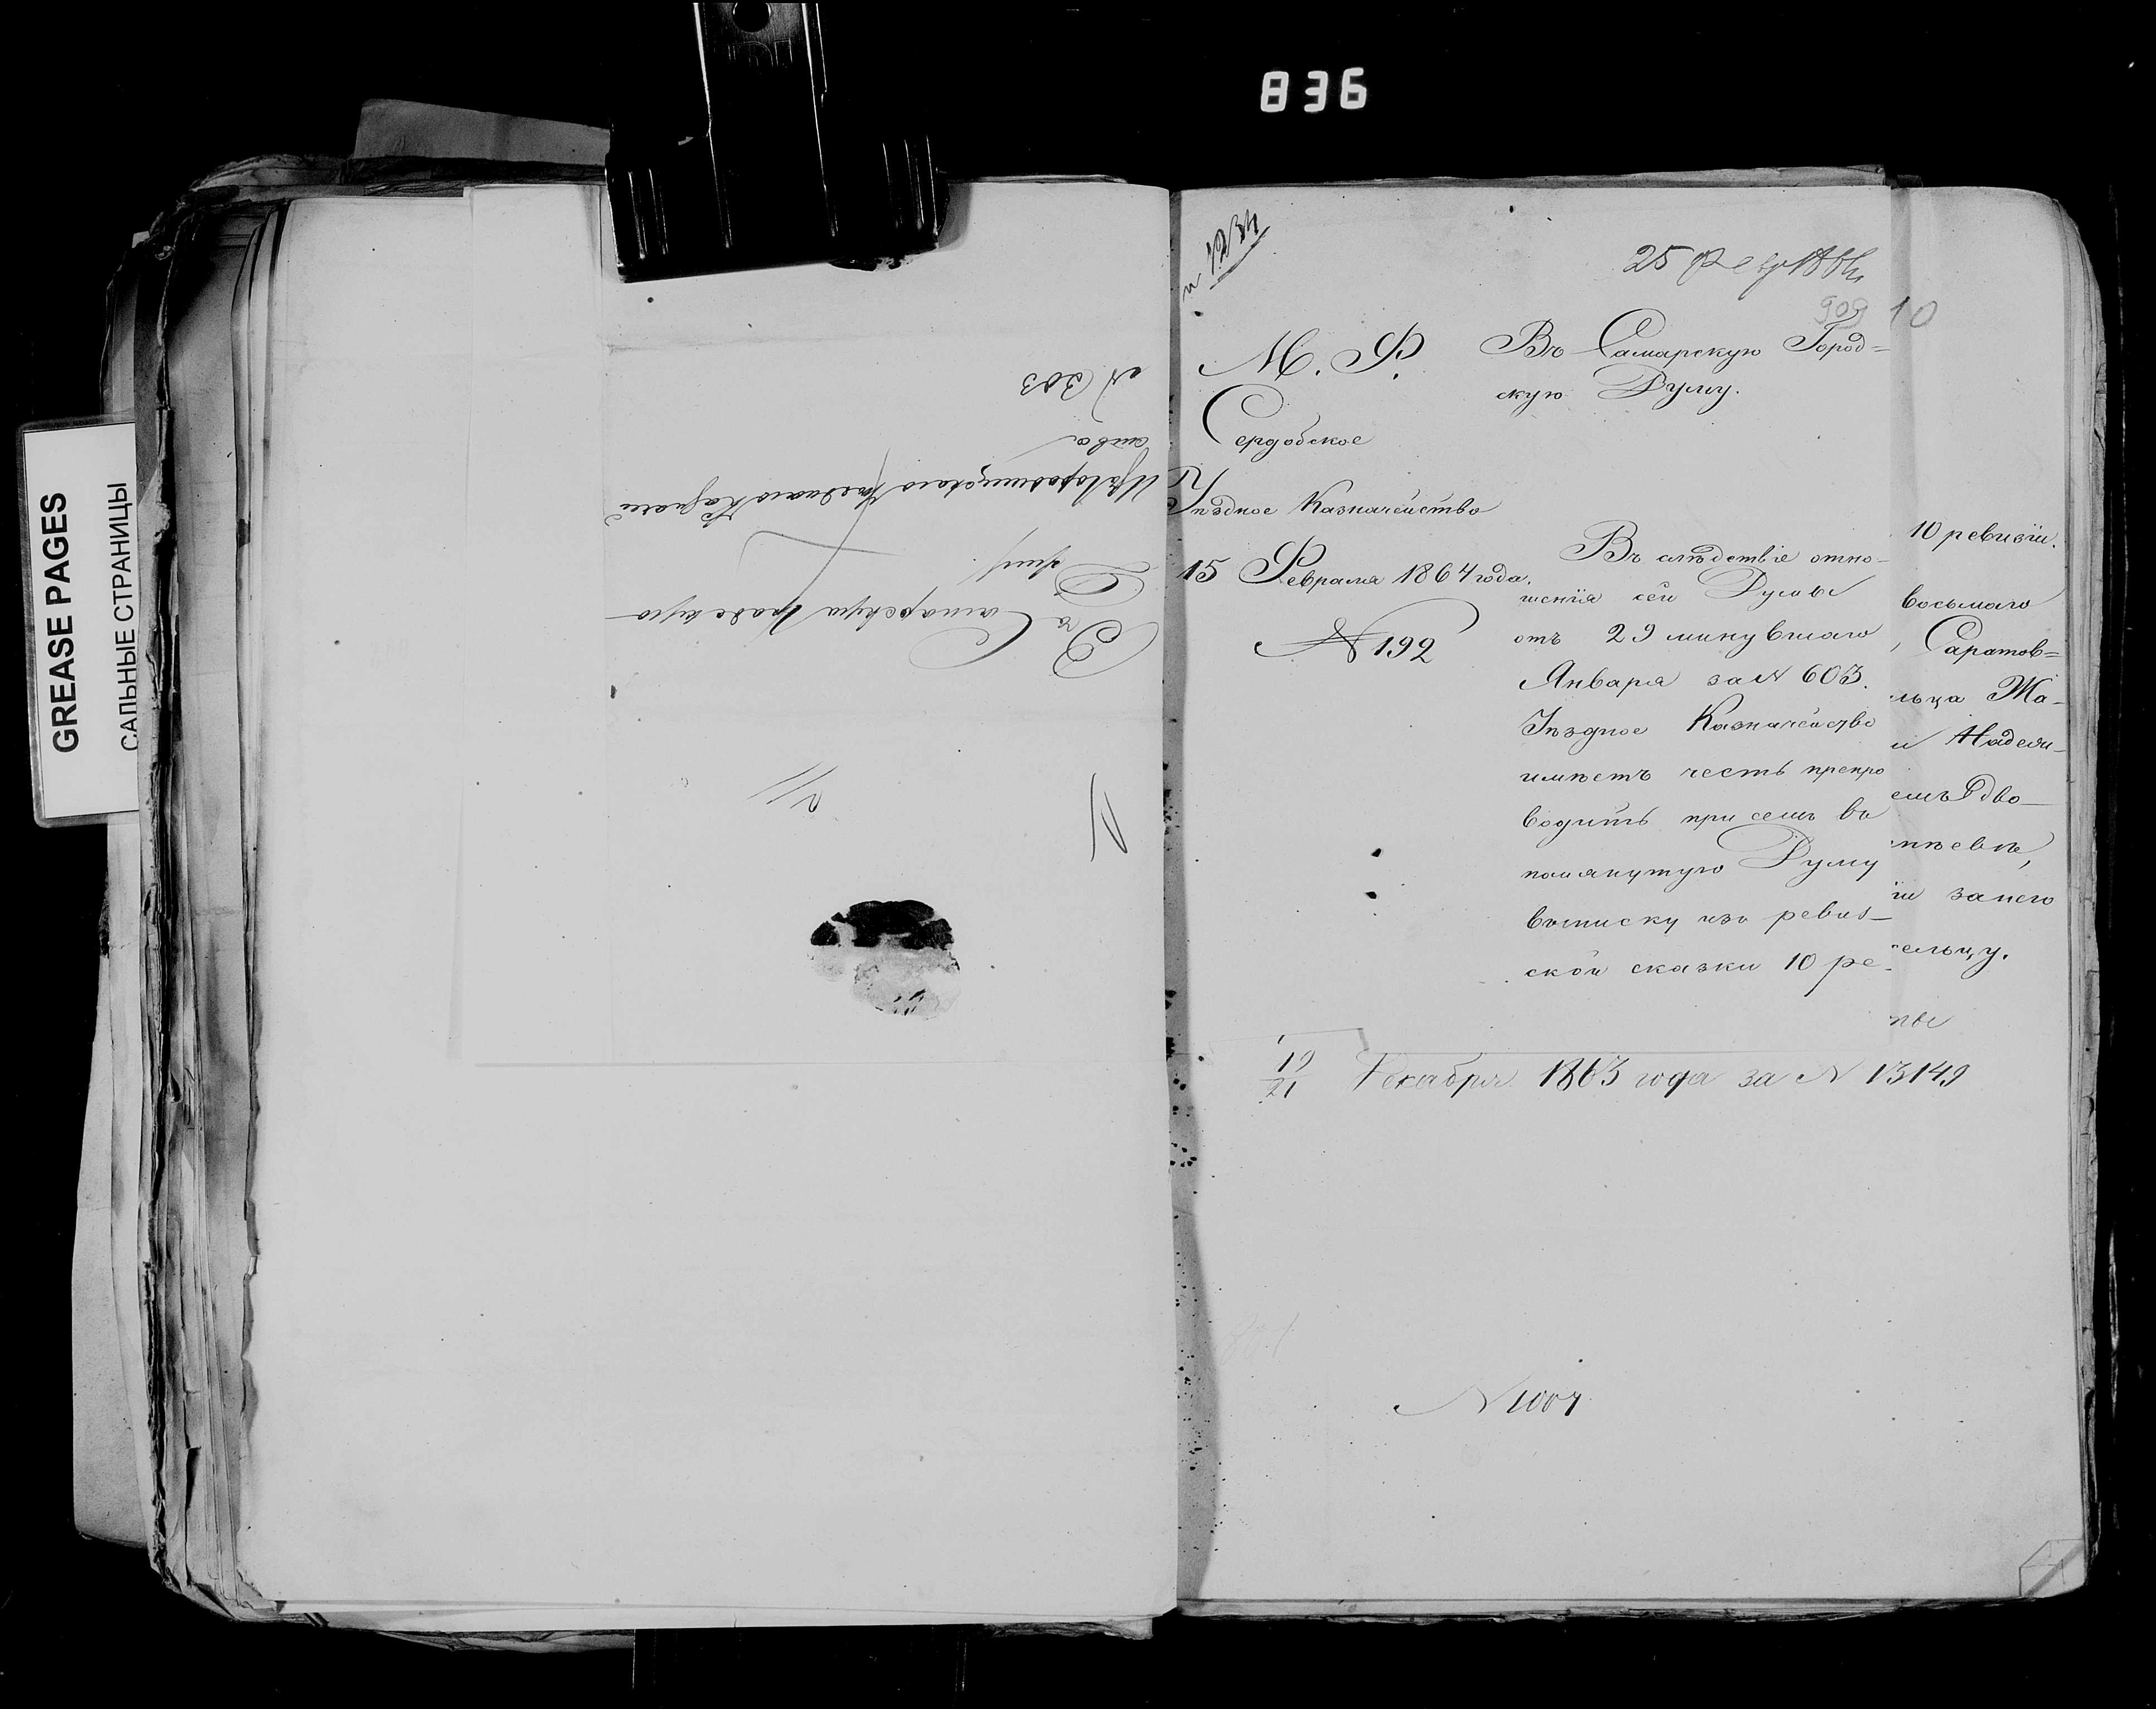 836
GREASE PAGES
САЛЬНЫЕ СТРАНИЦЫ
Въ Самарскую Градскую
Думу.
Уѣзднаго Казначей
ства
N 303
N 1234
25 Февр 1864
909 10
М. Ф.
Сердобское
Уѣздное Казначейство
15 Февраля 1864 года.
N 192
Въ Самарскую Город=
скую Думу.
Въ слѣдствіе отно-
шенія сей Думы
отъ 29 минувшаго
Января за N 603.
Уѣздное Казначейство
имѣетъ честь препро
водить при семъ въ
помянутую Думу
выписку изъ ревиз-
ской сказки 10 ре-
10 ревизіи.
восьмаго
, Саратов=
льца Жа-
и Надежи-
емъ Дво-
мѣевнѣ,
іи за него
ельцу.
пы
19/21 Декабря 1863 года за N 13149
N 1007